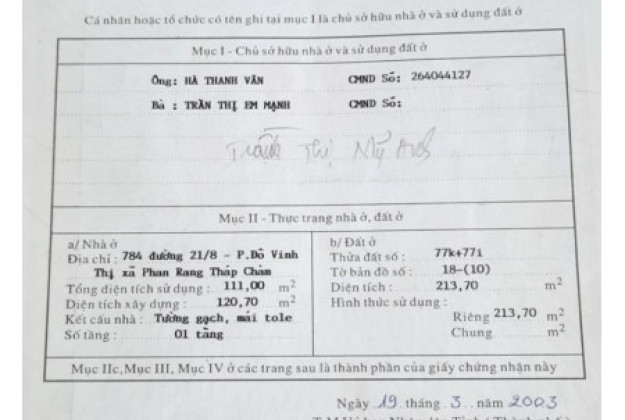 Cá nhân hoặc tổ chức có tên ghi tại mục I là chủ sở hữu nhà ở và sử dụng đất ở
Mục I - Chủ sở hữu nhà ở và sử dụng đất ở
Ông: HÀ THANH VÂN CMND Số: 264044127
Bà : TRẦN THỊ EM MẠNH CMND Số:
Trần Thị Mỹ
Mục II - Thực trạng nhà ở, đất ở
a/ Nhà ở
Địa chỉ : 784 đường 21/8 - P.Đô Vinh
Thị xã Phan Rang Tháp Chàm
Tổng diện tích sử dụng : 111,00 m²
Diện tích xây dựng : 120,70 m²
Kết cấu nhà : Tường gạch, mái tole
Số tầng : 01 tầng
b/ Đất ở
Thửa đất số : 77k+77i
Tờ bản đồ số : 18-(10)
Diện tích : 213,70 m²
Hình thức sử dụng :
Riêng 213,70 m²
Chung m²
Mục IIc,Mục III, Mục IV ở các trang sau là thành phần của giấy chứng nhận này
Ngày 19 tháng 3 năm 2003